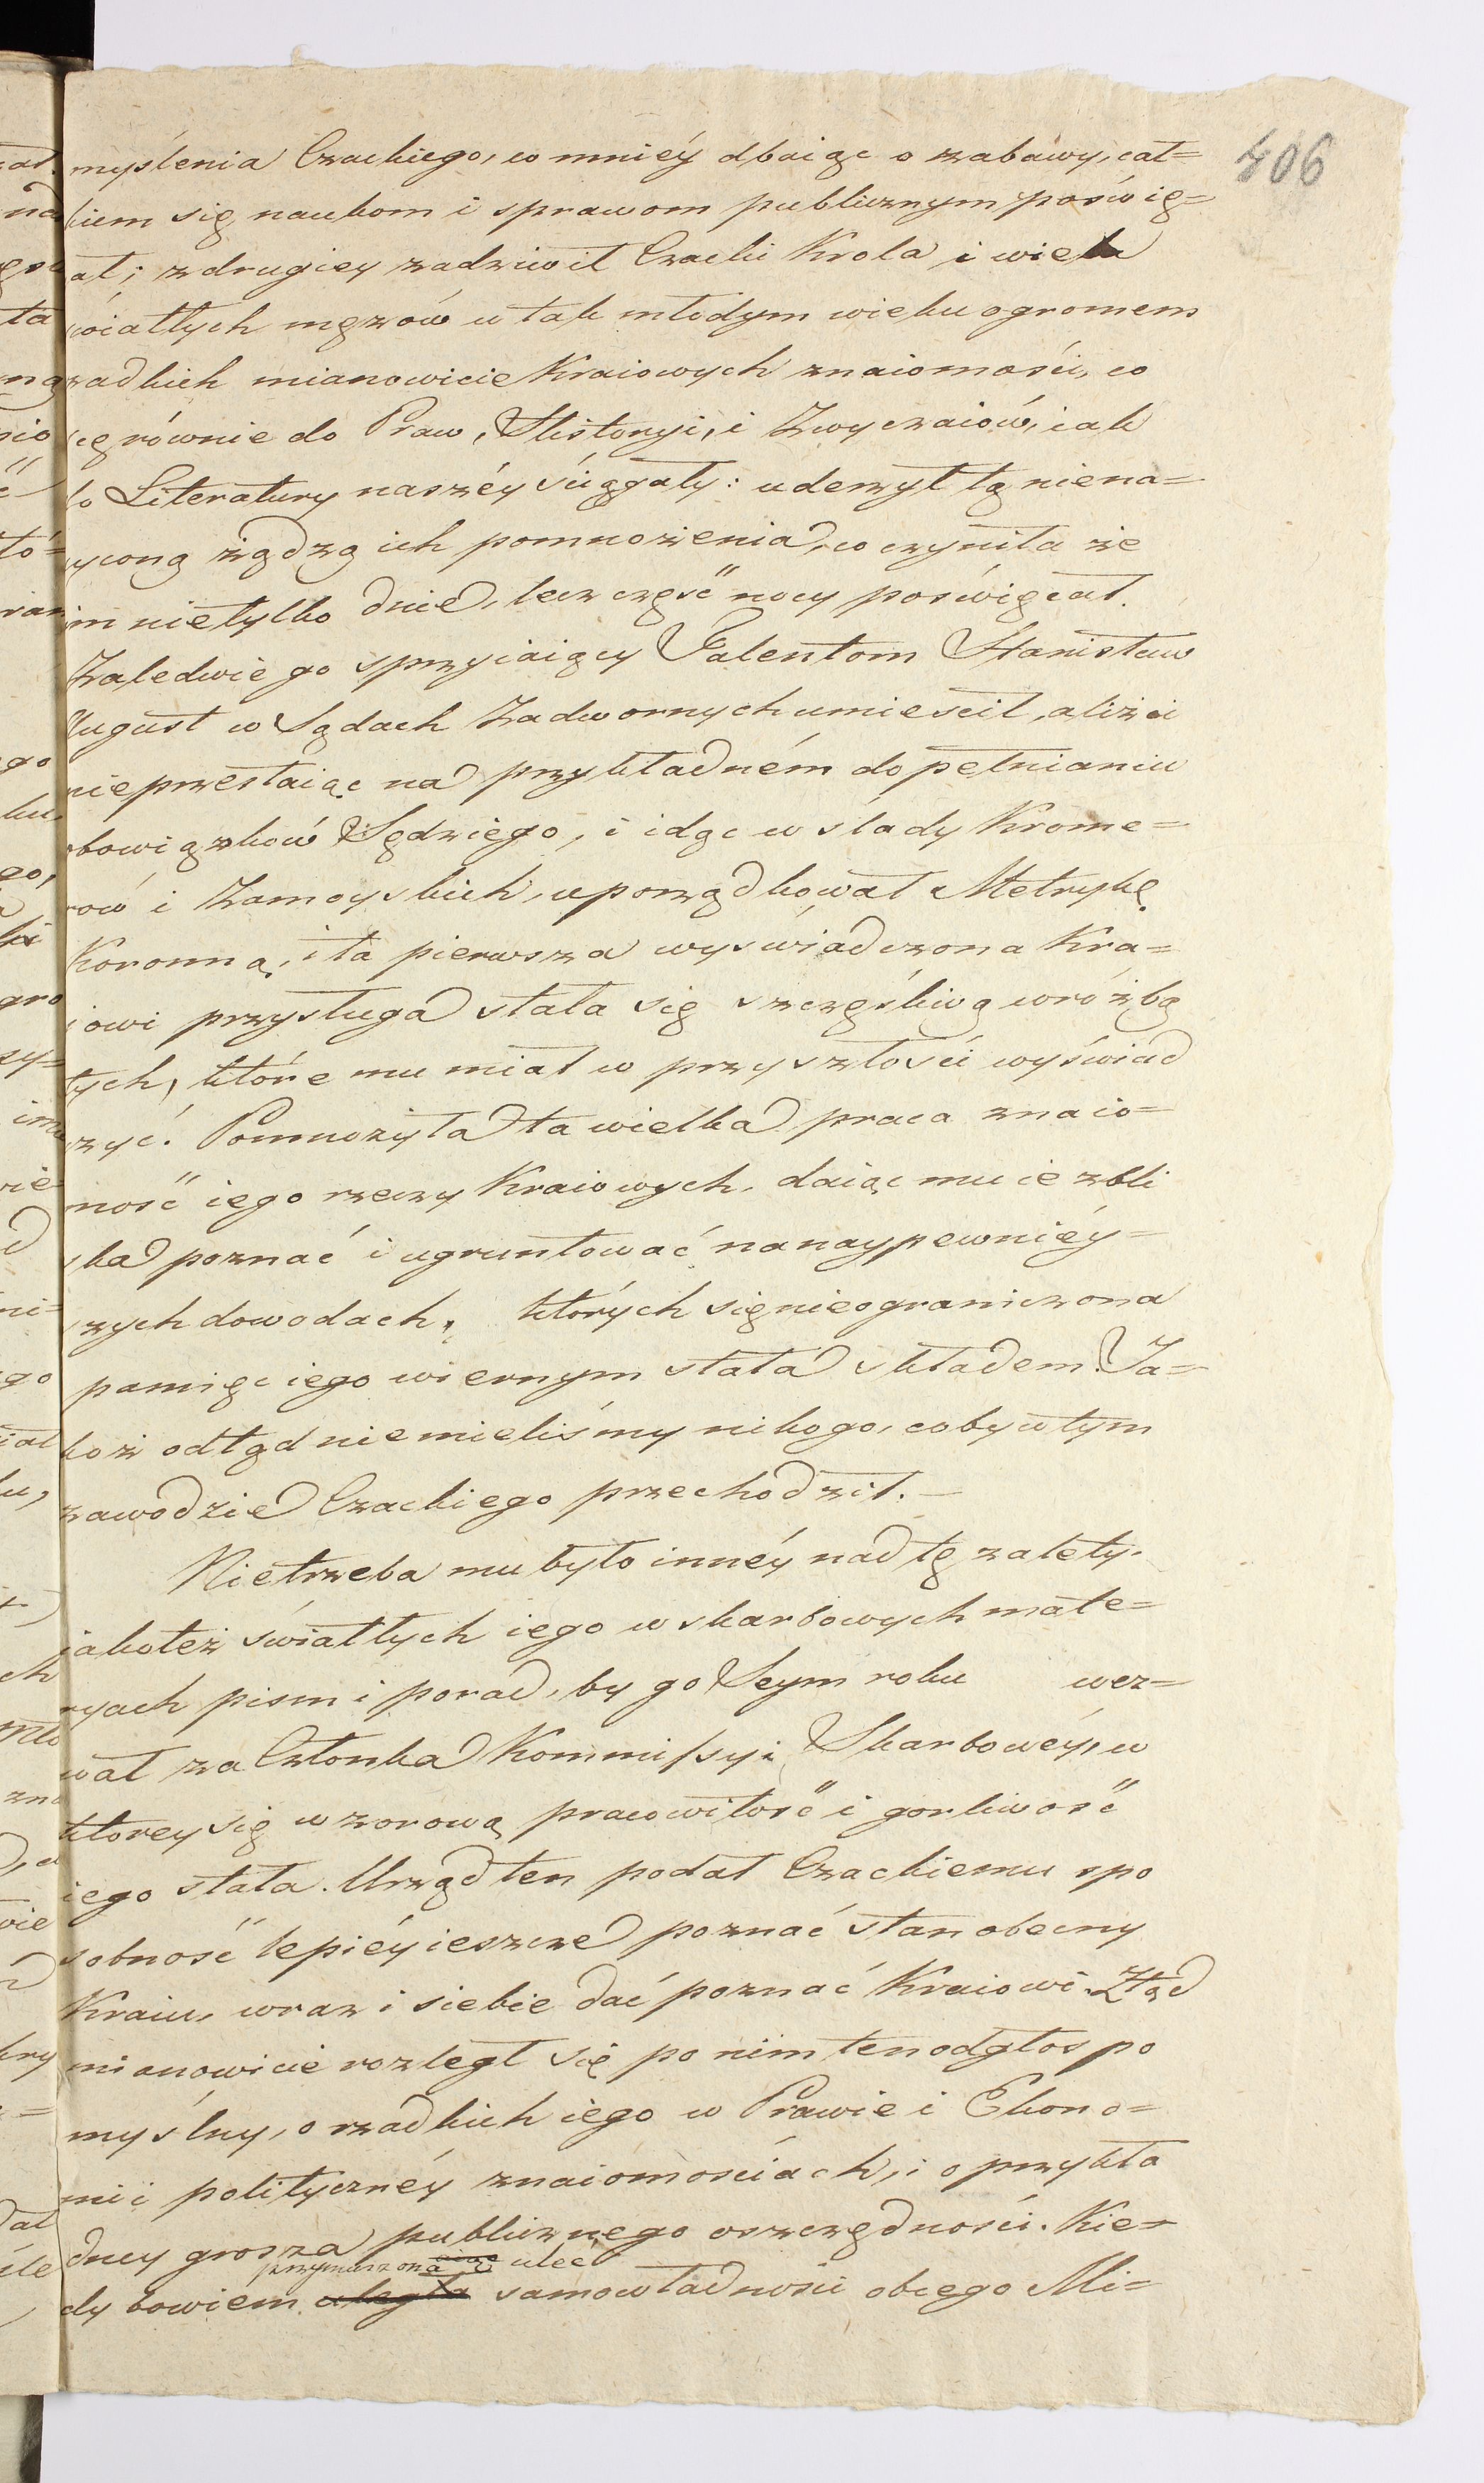 406
myślenia Czackiego, co mniéy dbaiąc o zabawy, cał=
kiem się naukom i sprawom publicznym poświę=
ał; z drugiey zadziwił Czacki Krola i wielu
wiatłych męzów w tak młodym wieku ogromem
zadkich mianowicie Kraiowych znaiomości, co
ię równie do Praw, Historyi, i Zwyczaiów, iak
o Literatury naszéy ściągały: uderzył tą niena=
yconą żądzą ich pomnożenia, co czyniła że
im nietylko dnie, lecz część nocy poświęcał.
Zaledwie go sprzyiaiący Talentom Stanisław
August w Sądach Zadwornych umieścił, aliżci
nieprzestaiąc na przykładném dopełnianiu
bowiązków Sędziego, i idąc w ślady Krome=
rów i Zamoyskich, uporządkował Metrykę
Koronną, i ta pierwsza wyświadczona Kra=
iowi przysługa stała się szczęśliwą wróżbą
tych, które mu miał w przyszłości wyświad
zyć. Pomnożyła ta wielka praca znaio=
mość iego rzeczy Kraiowych, daiąc mu ie zbli
ska poznać i ugruntować na naypewniéy=
szych dowodach, których się nieograniczona
pamięć iego wiernym stała składem. Ja=
koż odtąd nie mieliśmy nikogo, coby w tym
zawodzie Czackiego przechodził. —
Nietrzeba mu było innéy nad tę zalety.
iakoteż światłych iego w skarbowych mate=
ryach pism i porad, by go Seym roku wez=
wał za Członka Kommissyi Skarbowéy, w
któréy się wzorową pracowitość i gorliwość
iego stała. Urząd ten podał Czackiemu spo
sobność lepiéy ieszcze poznać stan obecny
Kraiu, wraz i siebie dać poznać Kraiowi. Ztąd
mianowicie rozległ się po nim ten odgłos po
myślny, o rzadkich iego w Prawie i Ekono=
mii polityczney znaiomościach, i o przykła
dney grosza publicznego oszczędności. Kie=
przymuszona uledz
dy bowiem uległa samowładności obcego Mi=